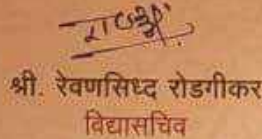 श्री. रेवणसिध्द रोडगीकर
विद्यासचिव